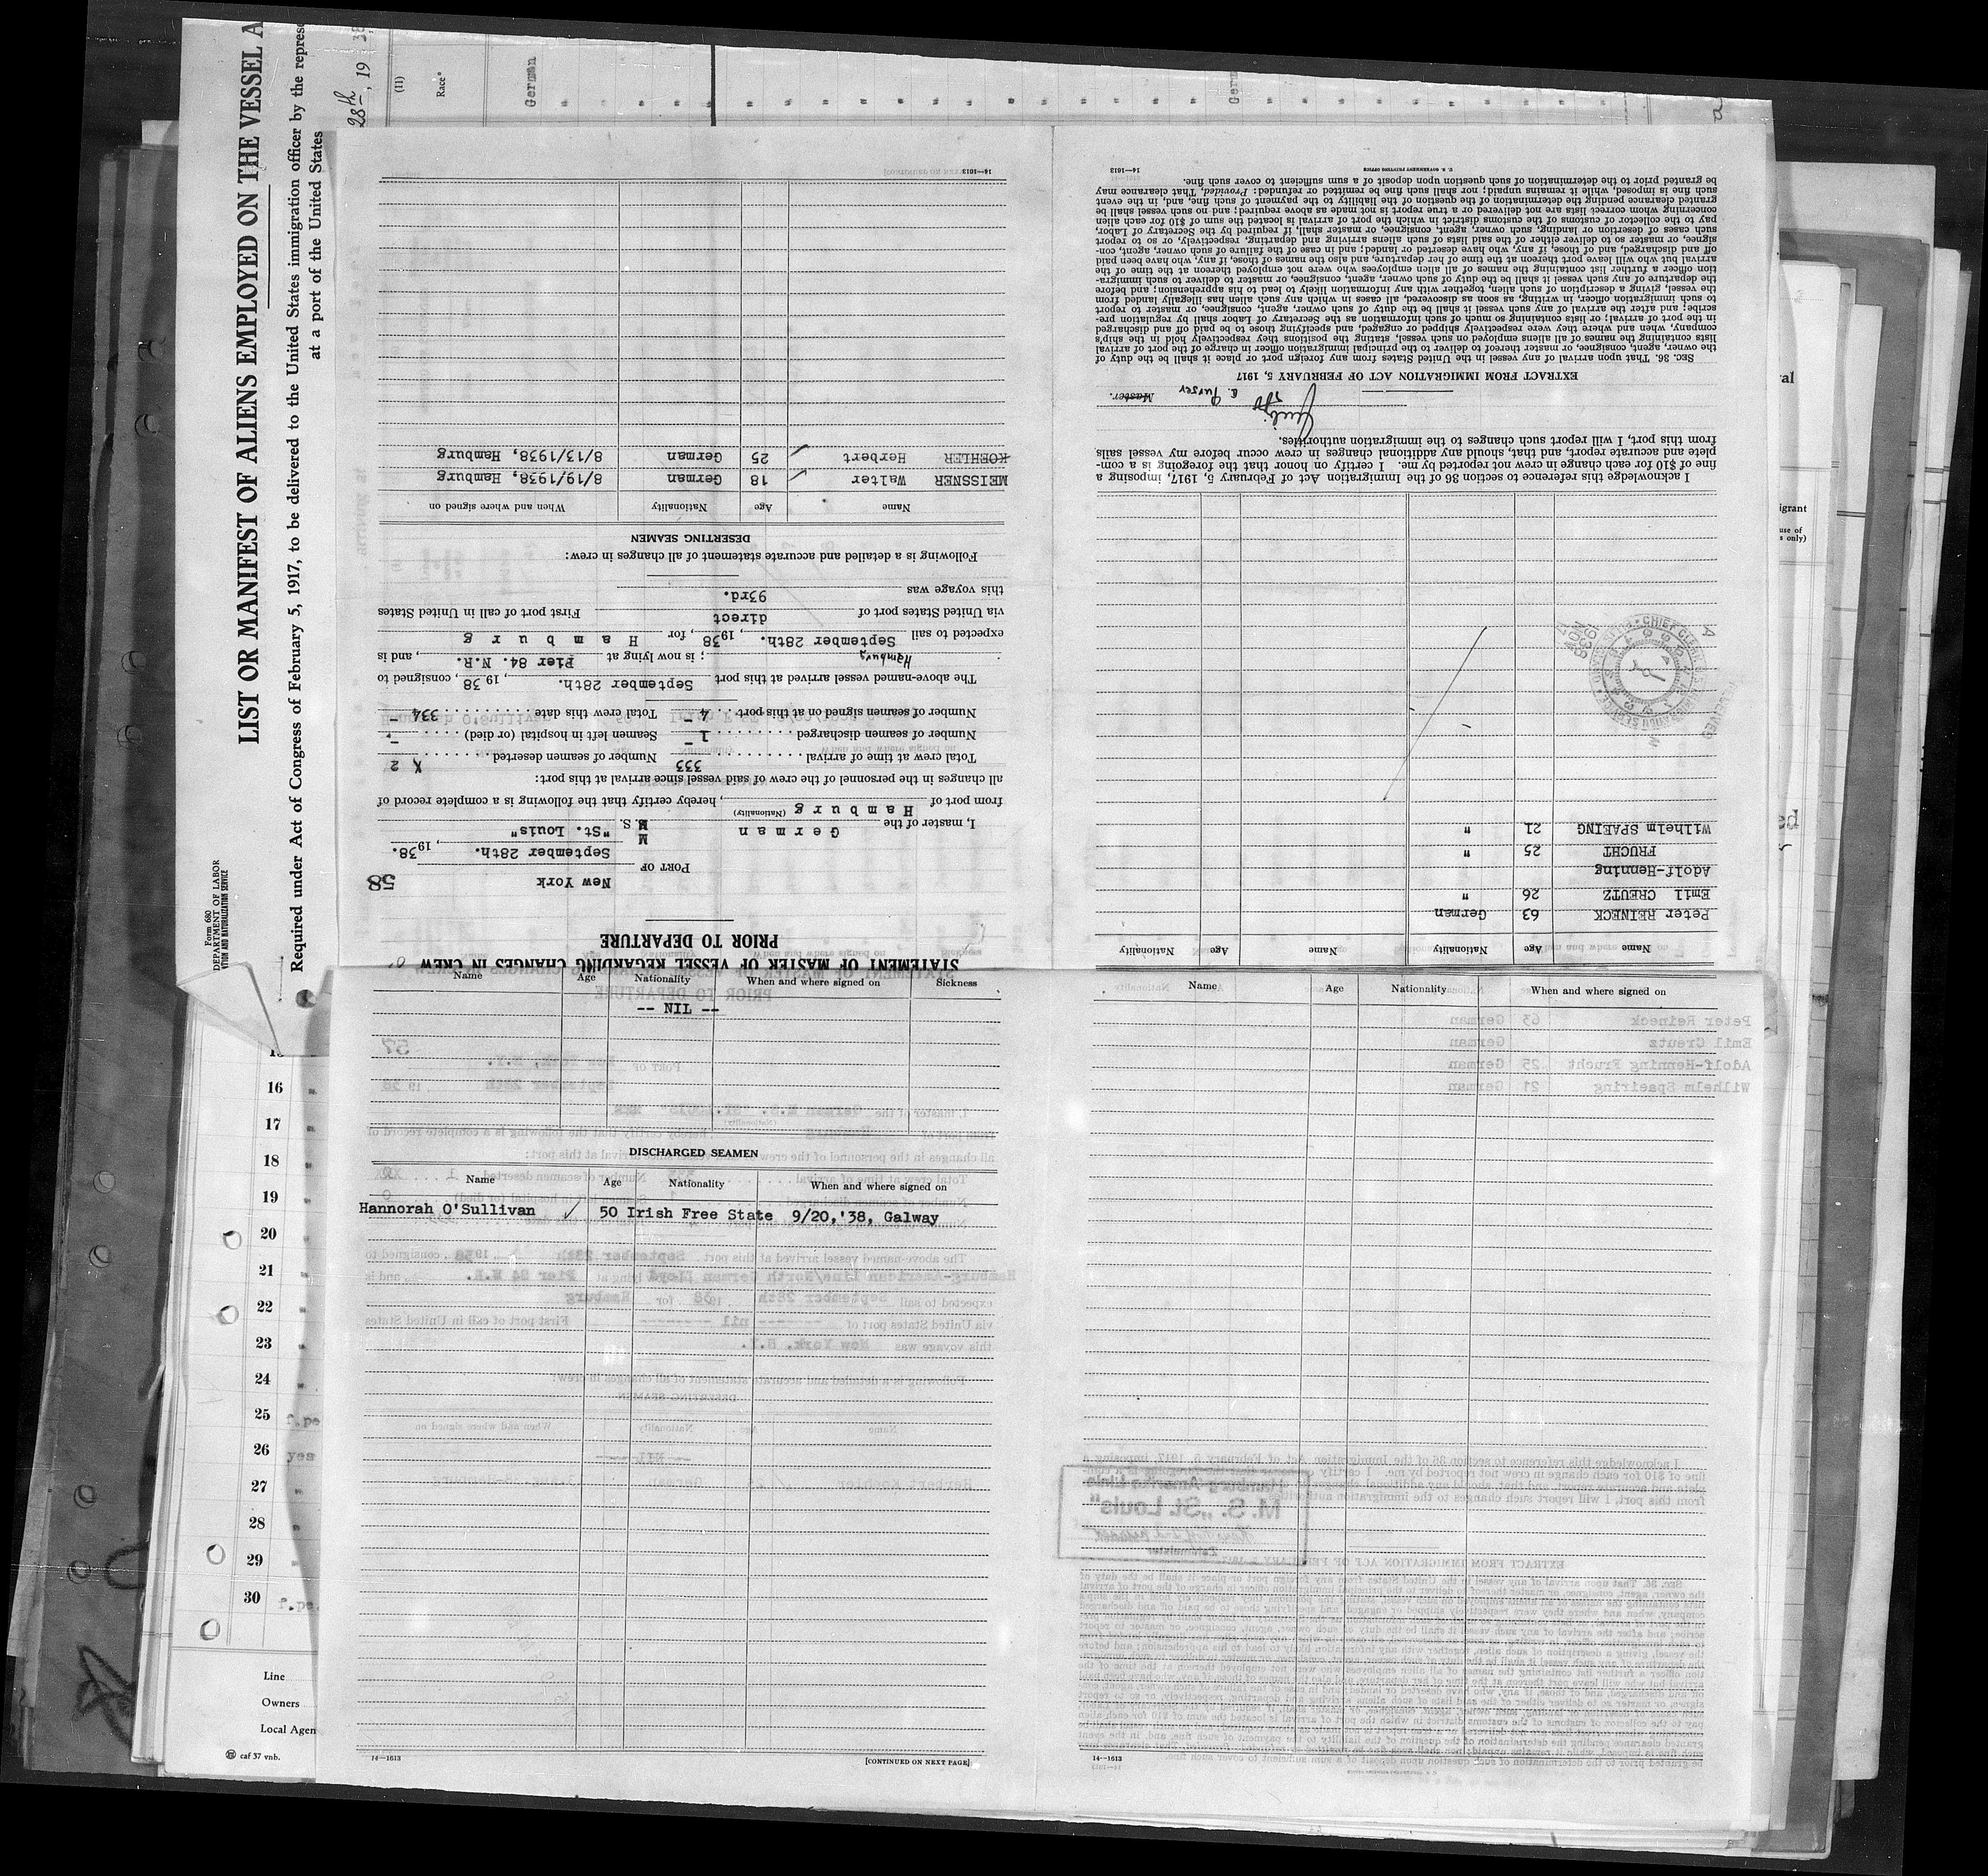 LIST OR MANIFEST OF ALIENS EMPLOYED ON THE VESSEL A
Required under Act of Congress of February 5, 1917, to be delivered to the United States immigration officer by the represe
at a port of the United States
Form 680
DEPARTMENT OF LABOR
28th, 19 38
(11)
Race*
German
Germ
STATEMENT OF MASTER OF VESSEL REGARDING CHANGES IN CREW
PRIOR TO DEPARTURE
58
PORT OF New York
September 28th. , 1938.
I, master of the German M. S. "St. Louis"
(Nationality)
from port of Hamburg , hereby certify that the following is a complete record of
all changes in the personnel of the crew of said vessel since arrival at this port:
Total crew at time of arrival 333 Number of seamen deserted 2
Number of seamen discharged 1 Seamen left in hospital (or died) -
Number of seamen signed on at this port 4 Total crew this date 334
The above-named vessel arrived at this port September 28th. , 1938 , consigned to
Hamburg ; is now lying at Pier 84. N.R. , and is
expected to sail September 28th. , 1938 , for Hamburg
via United States port of direct First port of call in United States
this voyage was 93rd.
Following is a detailed and accurate statement of all changes in crew:
DESERTING SEAMEN
Name Age Nationality When and where signed on
MEISSNER Walter ✓ 18 German 8/19/1938, Hamburg
KOEHLER Herbert ✓ 25 German 8/13/1938, Hamburg
14—1613
Name Age Nationality Name Age Nationality
Peter REINECK 63 German
Emil CREUTZ 26 "
Adolf-Henning
FRUCHT 25 "
Wilhelm SPAEING 21 "
I acknowledge this reference to section 36 of the Immigration Act of February 5, 1917, imposing a
fine of $10 for each change in crew not reported by me. I certify on honor that the foregoing is a com-
plete and accurate report, and that, should any additional changes in crew occur before my vessel sails
from this port, I will report such changes to the immigration authorities.
Purser
Master.
EXTRACT FROM IMMIGRATION ACT OF FEBRUARY 5, 1917
SEC. 36. That upon arrival of any vessel in the United States from any foreign port or place it shall be the duty of
the owner, agent, consignee, or master thereof to deliver to the principal immigration officer in charge of the port of arrival
lists containing the names of all aliens employed on such vessel, stating the positions they respectively hold in the ship's
company, when and where they were respectively shipped or engaged, and specifying those to be paid off and discharged
in the port of arrival; or lists containing so much of such information as the Secretary of Labor shall by regulation pre-
scribe; and after the arrival of any such vessel it shall be the duty of such owner, agent, consignee, or master to report
to such immigration officer, in writing, as soon as discovered, all cases in which any such alien has illegally landed from
the vessel, giving a description of such alien, together with any information likely to lead to his apprehension; and before
the departure of any such vessel it shall be the duty of such owner, agent, consignee, or master to deliver to such immigra-
tion officer a further list containing the names of all alien employees who were not employed thereon at the time of the
arrival but who will leave port thereon at the time of her departure, and also the names of those, if any, who have been paid
off and discharged, and of those, if any, who have deserted or landed; and in case of the failure of such owner, agent, con-
signee, or master so to deliver either of the said lists of such aliens arriving and departing, respectively, or so to report
such cases of desertion or landing, such owner, agent, consignee, or master shall, if required by the Secretary of Labor,
pay to the collector of customs of the customs district in which the port of arrival is located the sum of $10 for each alien
concerning whom correct lists are not delivered or a true report is not made as above required; and no such vessel shall be
granted clearance pending the determination of the question of the liability to the payment of such fine, and, in the event
such fine is imposed, while it remains unpaid; nor shall such fine be remitted or refunded: Provided, That clearance may
be granted prior to the determination of such question upon deposit of a sum sufficient to cover such fine.
U. S. GOVERNMENT PRINTING OFFICE
14—1613
Name Age Nationality When and where signed on Sickness
-- NIL --
DISCHARGED SEAMEN
Name Age Nationality When and where signed on
Hannorah O'Sullivan ✓ 50 Irish Free State 9/20,'38, Galway
14—1613
[CONTINUED ON NEXT PAGE]
Name Age Nationality When and where signed on
14—1613
16
17
18
19
20
21
22
23
24
25
26 yes
27
28
29
30
Line
Owners
Local Agen
caf 37 vnb.